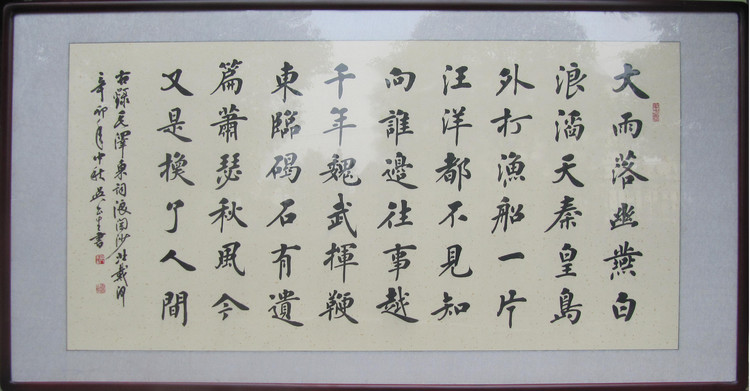 大雨落幽燕白
浪滔天秦皇島
外打漁船一片
汪洋都不見知
向誰邊往事越
千年魏武揮鞭
東臨碣石有遺
篇蕭瑟秋風今
又是換了人間
右錄毛澤東詞浪淘沙北戴河
辛卯年中秋吳書